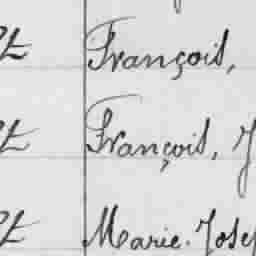 François,
François, J
Marie. Jose